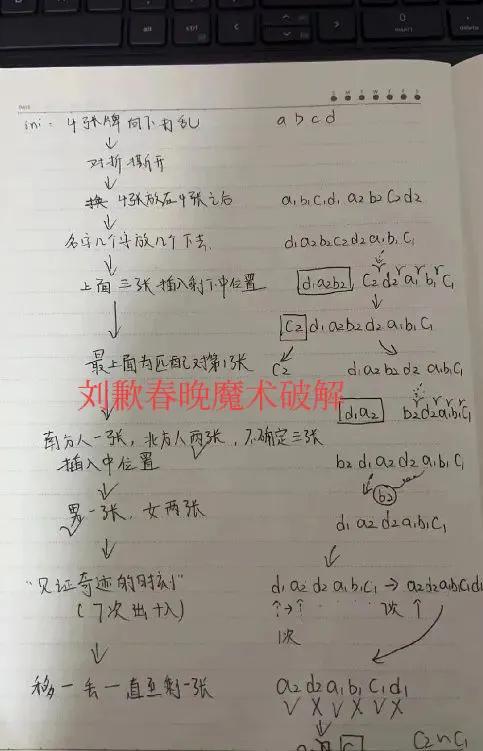 DATE
ini: 4张牌向下打乱 a b c d
对折撕开
换 4张放在4张之后 a₁b₁c₁d₁ a₂b₂c₂d₂
名字几个字放几个下去 d₁a₂b₂c₂d₂a₁b₁c₁
上面三张插入剩下中位置 d₁a₂b₂ c₂ d₂ a₁ b₁ c₁
c₂ d₁a₂b₂d₂a₁b₁c₁
最上面为匹配对第1张 c₂ d₁a₂b₂d₂ a₁b₁c₁
刘歉春晚魔术破解
d₁a₂ b₂d₂a₁b₁c₁
南方人一张，北方人两张，不确定三张
插入中位置 b₂ d₁ a₂ d₂ a₁b₁ c₁
b₂
男一张，女两张 d₁ a₂ d₂a₁b₁c₁
"见证奇迹的时刻" d₁a₂ d₂ a₁b₁c₁ → a₂d₂a₁b₁c₁d₁
(7次出+入) 7次
1次
移一丢一直至剩一张 a₂ d₂ a₁ b₁ c₁ d₁
V X V X V X